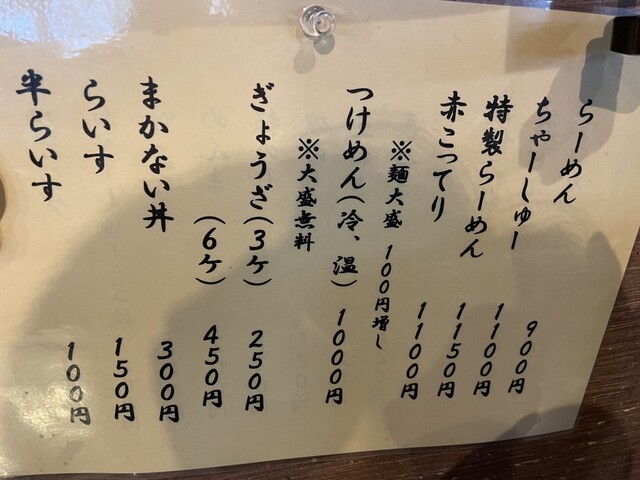 らーめん 900円
ちゃーしゅー 1100円
特製らーめん 1150円
赤こってり 1100円
※麺大盛 100円増し
つけめん(冷、温) 1000円
※大盛無料
ぎょうざ(3ケ) 250円
(6ケ) 450円
まかない丼 300円
らいす 150円
半らいす 100円